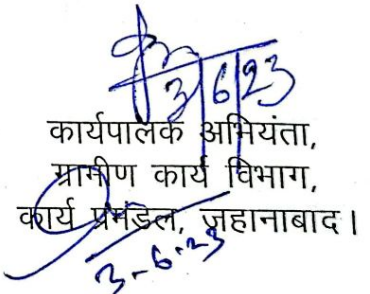 3/6/23
कार्यपालक अभियंता,
ग्रामीण कार्य विभाग,
कार्य प्रमंडल, जहानाबाद।
3-6-23